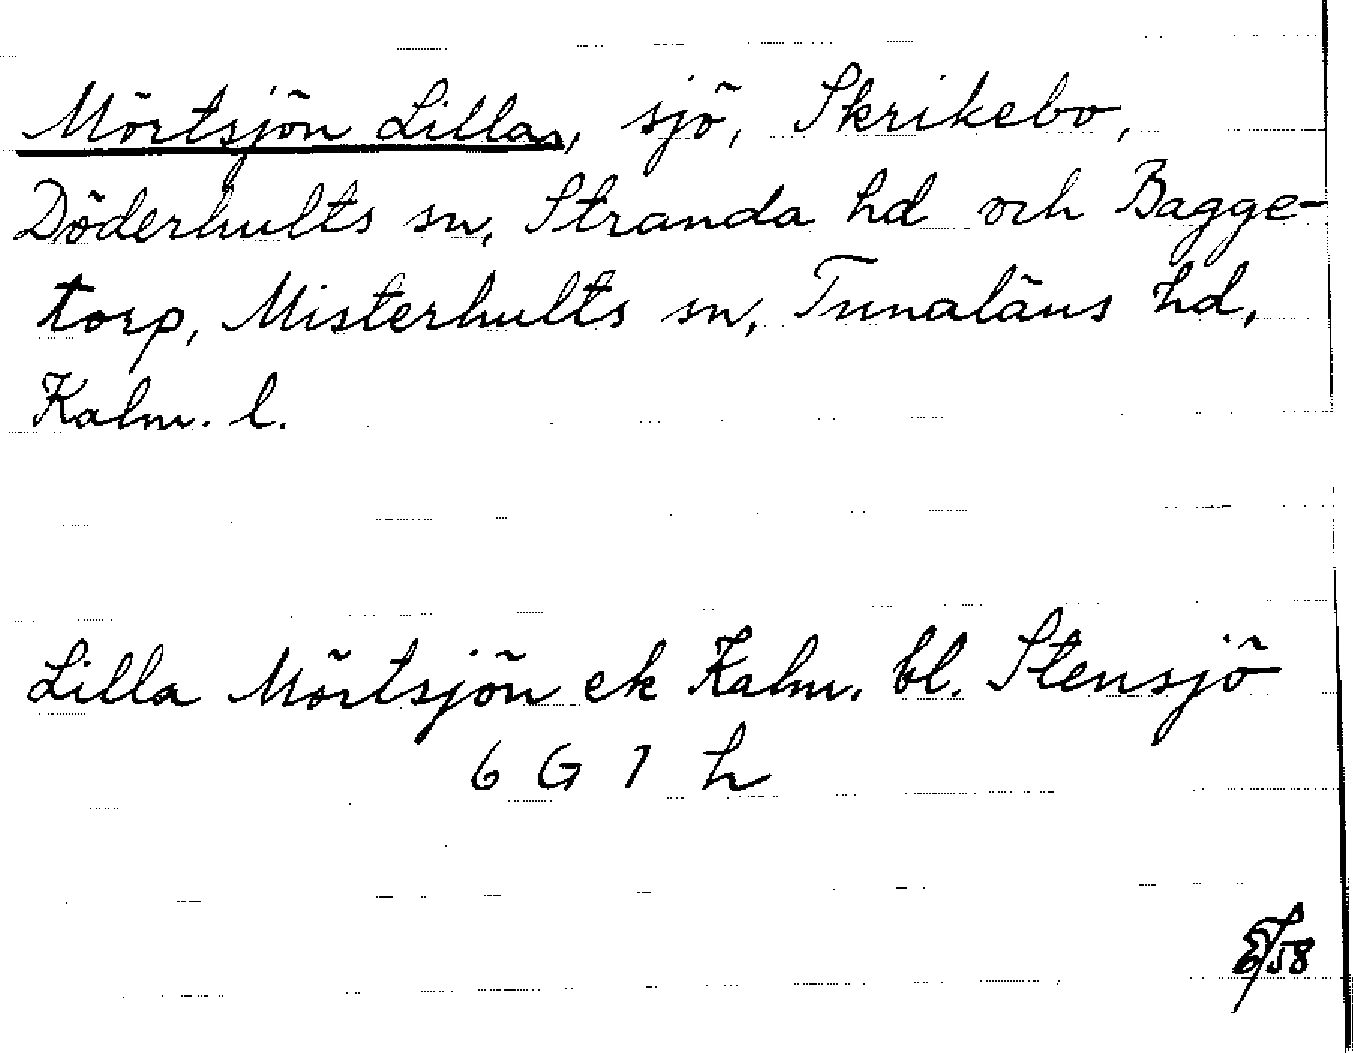 Mörtsjön Lilla, sjö, Skrikebo,
Döderhults sn, Stranda hd och Bagge-
torp, Misterhults sn, Tunaläns hd,
Kalm. l.
Lilla Mörtsjön ek Kalm. bl. Stensjö
6 G 1 h